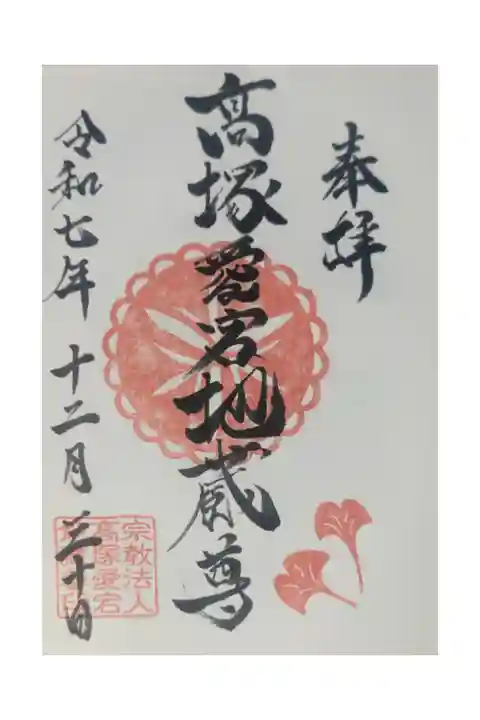 奉拝
髙塚愛宕地蔵尊
令和七年 十二月 三十日
宗教法人
高塚愛宕